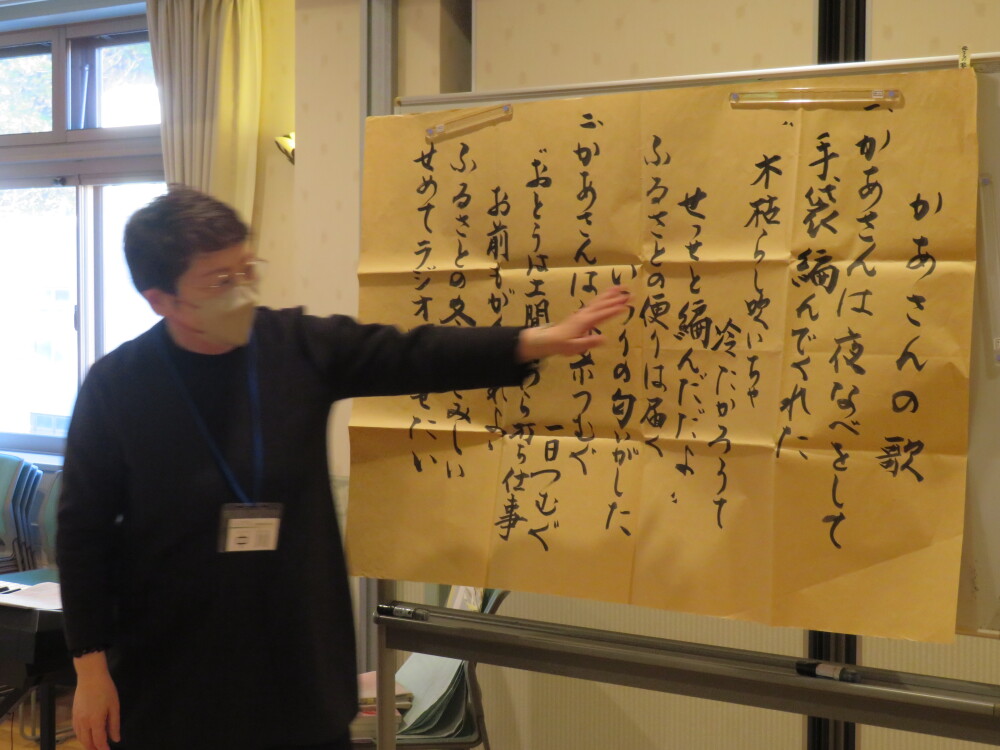 かあさんの歌
一、かあさんは夜なべをして
手袋編んでくれた
〃木枯らし吹いちゃ
冷たかろうて
せっせと編んだだよ〃
ふるさとの便りは届く
りの匂いがした
二、かあさんは 糸つむぐ
一日つむぐ
〃おとうは土間 ら打ち仕事
お前もが れよ〃
ふるさとの冬 さみしい
せめてラジオ せたい